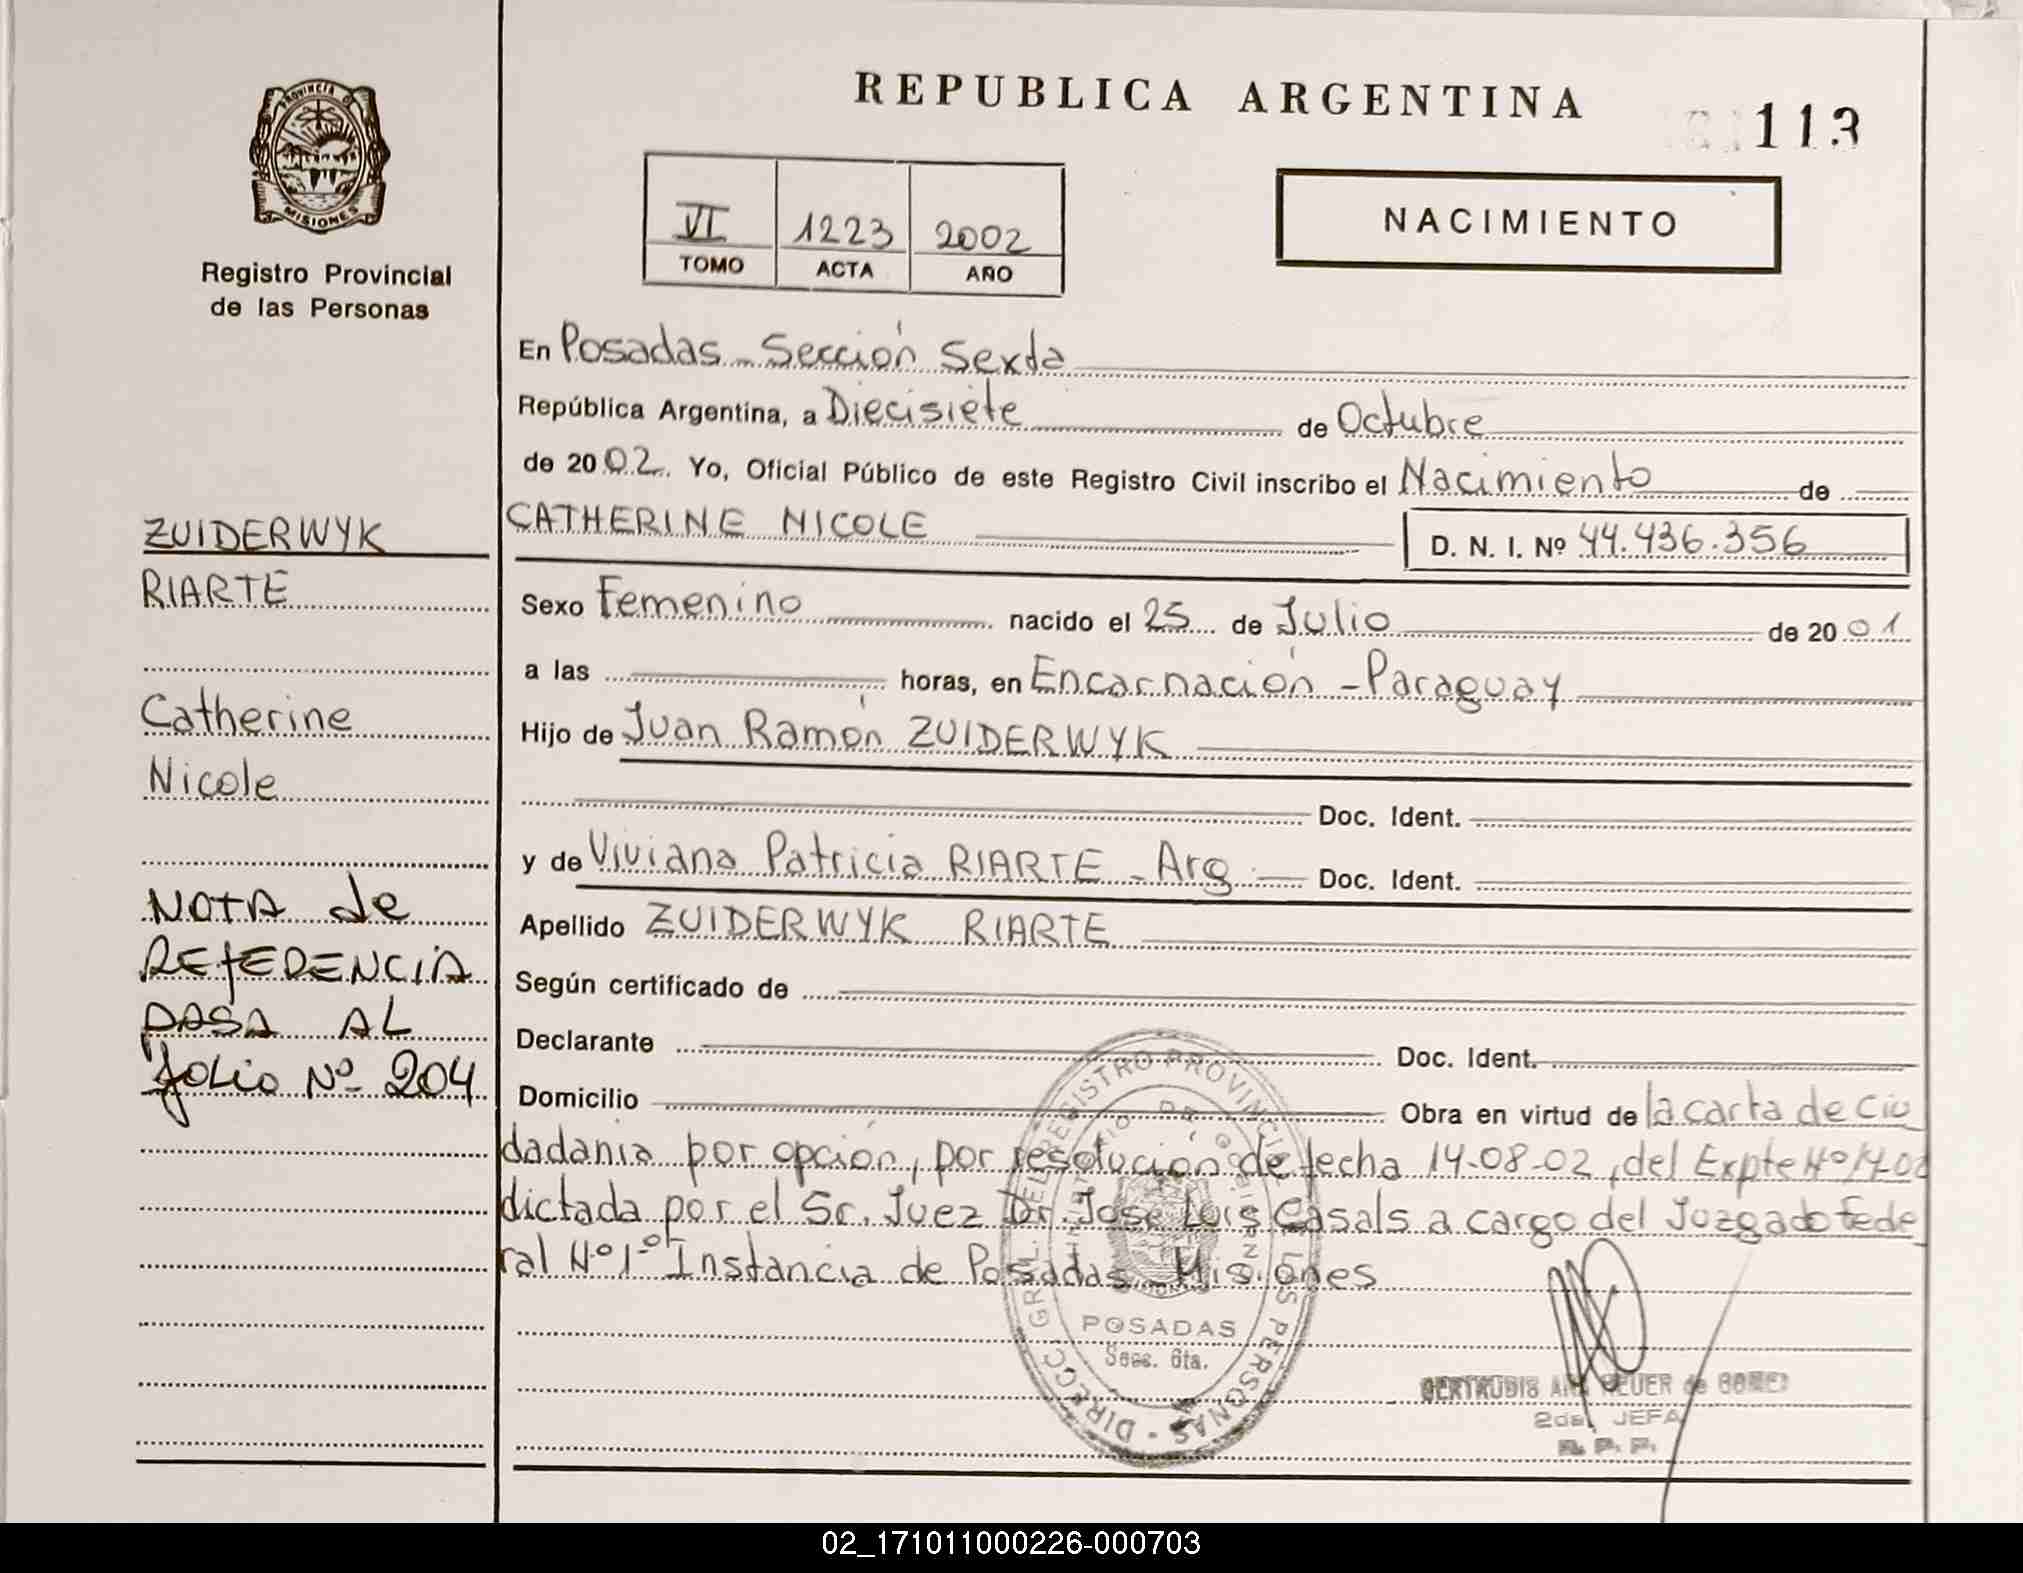 REPUBLICA ARGENTINA
113
PROVINCIA DE
MISIONES
Registro Provincial
de las Personas
VI 1223 2002
TOMO ACTA AÑO
NACIMIENTO
En Posadas - Sección Sexta
República Argentina, a Diecisiete de Octubre
de 2002. Yo, Oficial Público de este Registro Civil inscribo el Nacimiento de
CATHERINE NICOLE D. N. I. Nº 44.436.356
Sexo Femenino nacido el 25 de Julio de 2001
a las horas, en Encarnación - Paraguay
Hijo de Juan Ramón ZUIDERWYK
Doc. Ident.
y de Viviana Patricia RIARTE - Arg Doc. Ident.
Apellido ZUIDERWYK RIARTE
Según certificado de
Declarante Doc. Ident.
Domicilio Obra en virtud de la carta de Ciu
dadania por opción, por resolución de fecha 14-08-02, del Expte Nº
dictada por el Sr. Juez Dr. José Luis Casals a cargo del Juzgado Fede
ral Nº 1º Instancia de Posadas Misiones
ZUIDERWYK
RIARTE
Catherine
Nicole
NOTA de
REFERENCIA
PASA AL
folio Nº 204
DIRECC. GRAL. DEL REGISTRO PROVINCIAL DE LAS PERSONAS
POSADAS
Secc. 6ta.
GERTRUDIS
2da. JEFA
R. P. P.
02_171011000226-000703